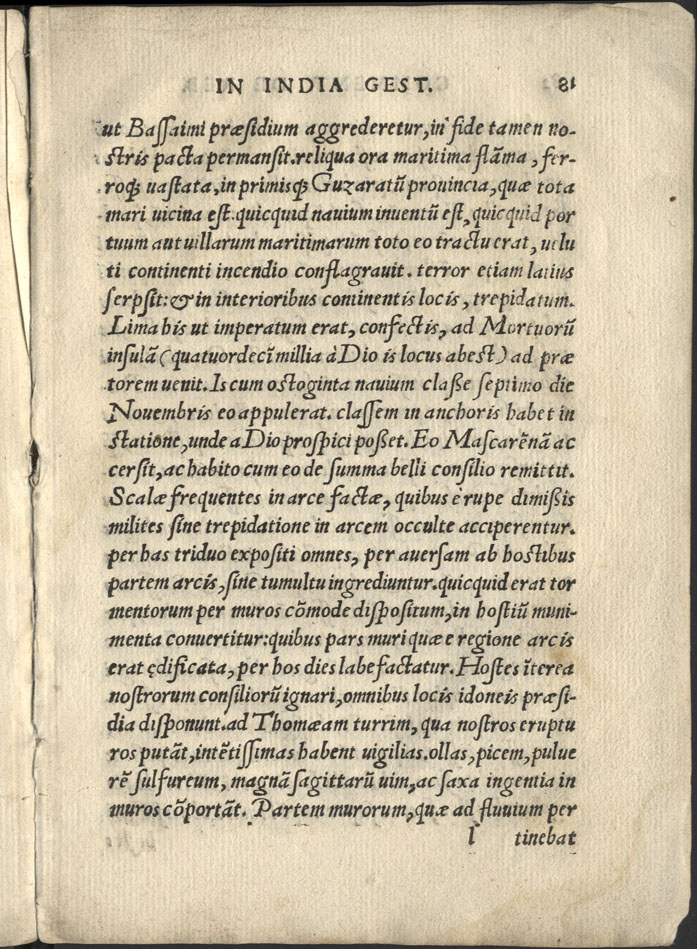 IN INDIA GEST. 81
ut Bassaimi præsidium aggrederetur, in fide tamen no-
stris pacta permansit. reliqua ora maritima flãma, fer-
roq; uastata, in primisq; Guzaratũ prouincia, quæ tota
mari uicina est. quicquid nauium inuentũ est, quicquid por
tuum aut uillarum maritimarum toto eo tractu erat, uelu
ti continenti incendio conflagrauit. terror etiam latius
serpsit: & in interioribus continentis locis, trepidatum.
Lima his ut imperatum erat, confectis, ad Mortuorũ
insulã (quatuordecĩ millia à Dio is locus abest) ad præ
torem uenit. Is cum octoginta nauium classe septimo die
Nouembris eo appulerat. classem in anchoris habet in
statione, unde a Dio prospici posset. Eo Mascarẽnã ac
cersit, ac habito cum eo de summa belli consilio remittit.
Scalæ frequentes in arce factæ, quibus è rupe dimissis
milites sine trepidatione in arcem occulte acciperentur.
per has triduo expositi omnes, per auersam ab hostibus
partem arcis, sine tumultu ingrediuntur. quicquid erat tor
mentorum per muros cõmode dispositum, in hostiũ muni-
menta conuertitur: quibus pars muri quæ e regione arcis
erat ędificata, per hos dies labefactatur. Hostes ĩterea
nostrorum consiliorũ ignari, omnibus locis idoneis præsi-
dia disponunt. ad Thomæam turrim, qua nostros eruptu
ros putãt, intẽtissimas habent uigilias. ollas, picem, pulue
rẽ sulfureum, magnã sagittarũ uim, ac saxa ingentia in
muros cõportãt. Partem murorum, quæ ad fluuium per
l tinebat